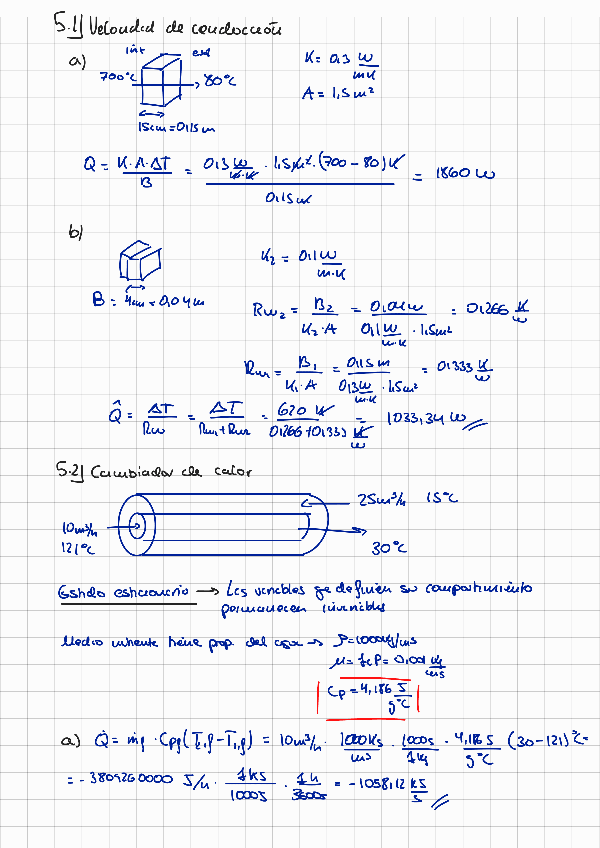 5.1) Velocidad de conducción
a)
int ext
700°C → 80°C
15cm = 0,15 m
K = 0,3 W/mK
A = 1,5 m²
Q = K·A·ΔT / B = 0,3 W/m·K · 1,5 m² · (700 - 80) K / 0,15 m = 1860 W
b)
B = 4cm = 0,04 m
K₂ = 0,1 W/m·K
Rw₂ = B₂ / K₂·A = 0,04 m / 0,1 W/m·K · 1,5m² = 0,266 K/W
Rw₁ = B₁ / K₁·A = 0,15 m / 0,3 W/m·K · 1,5m² = 0,333 K/W
Q̂ = ΔT / Rw = ΔT / Rw₁+Rw₂ = 620 K / 0,266+0,333 K/W = 1033,34 W
5.2) Cambiador de calor
25m³/h 15°C
10m³/h
121°C
30°C
Estado estacionario → Las variables que definen su comportamiento
permanecen invariables
Medio caliente tiene prop. del agua → ρ = 1000 kg/m³
μ = 1 cP = 0,001 kg/ms
Cp = 4,186 J/g°C
a) Q̇ = ṁg · Cpg (T2,g - T1,g) = 10m³/h · 1000kg/m³ · 1000g/1kg · 4,186 J/g°C (30-121)°C =
= -3809260000 J/h · 1kJ/1000J · 1h/3600s = -1058,12 kJ/s